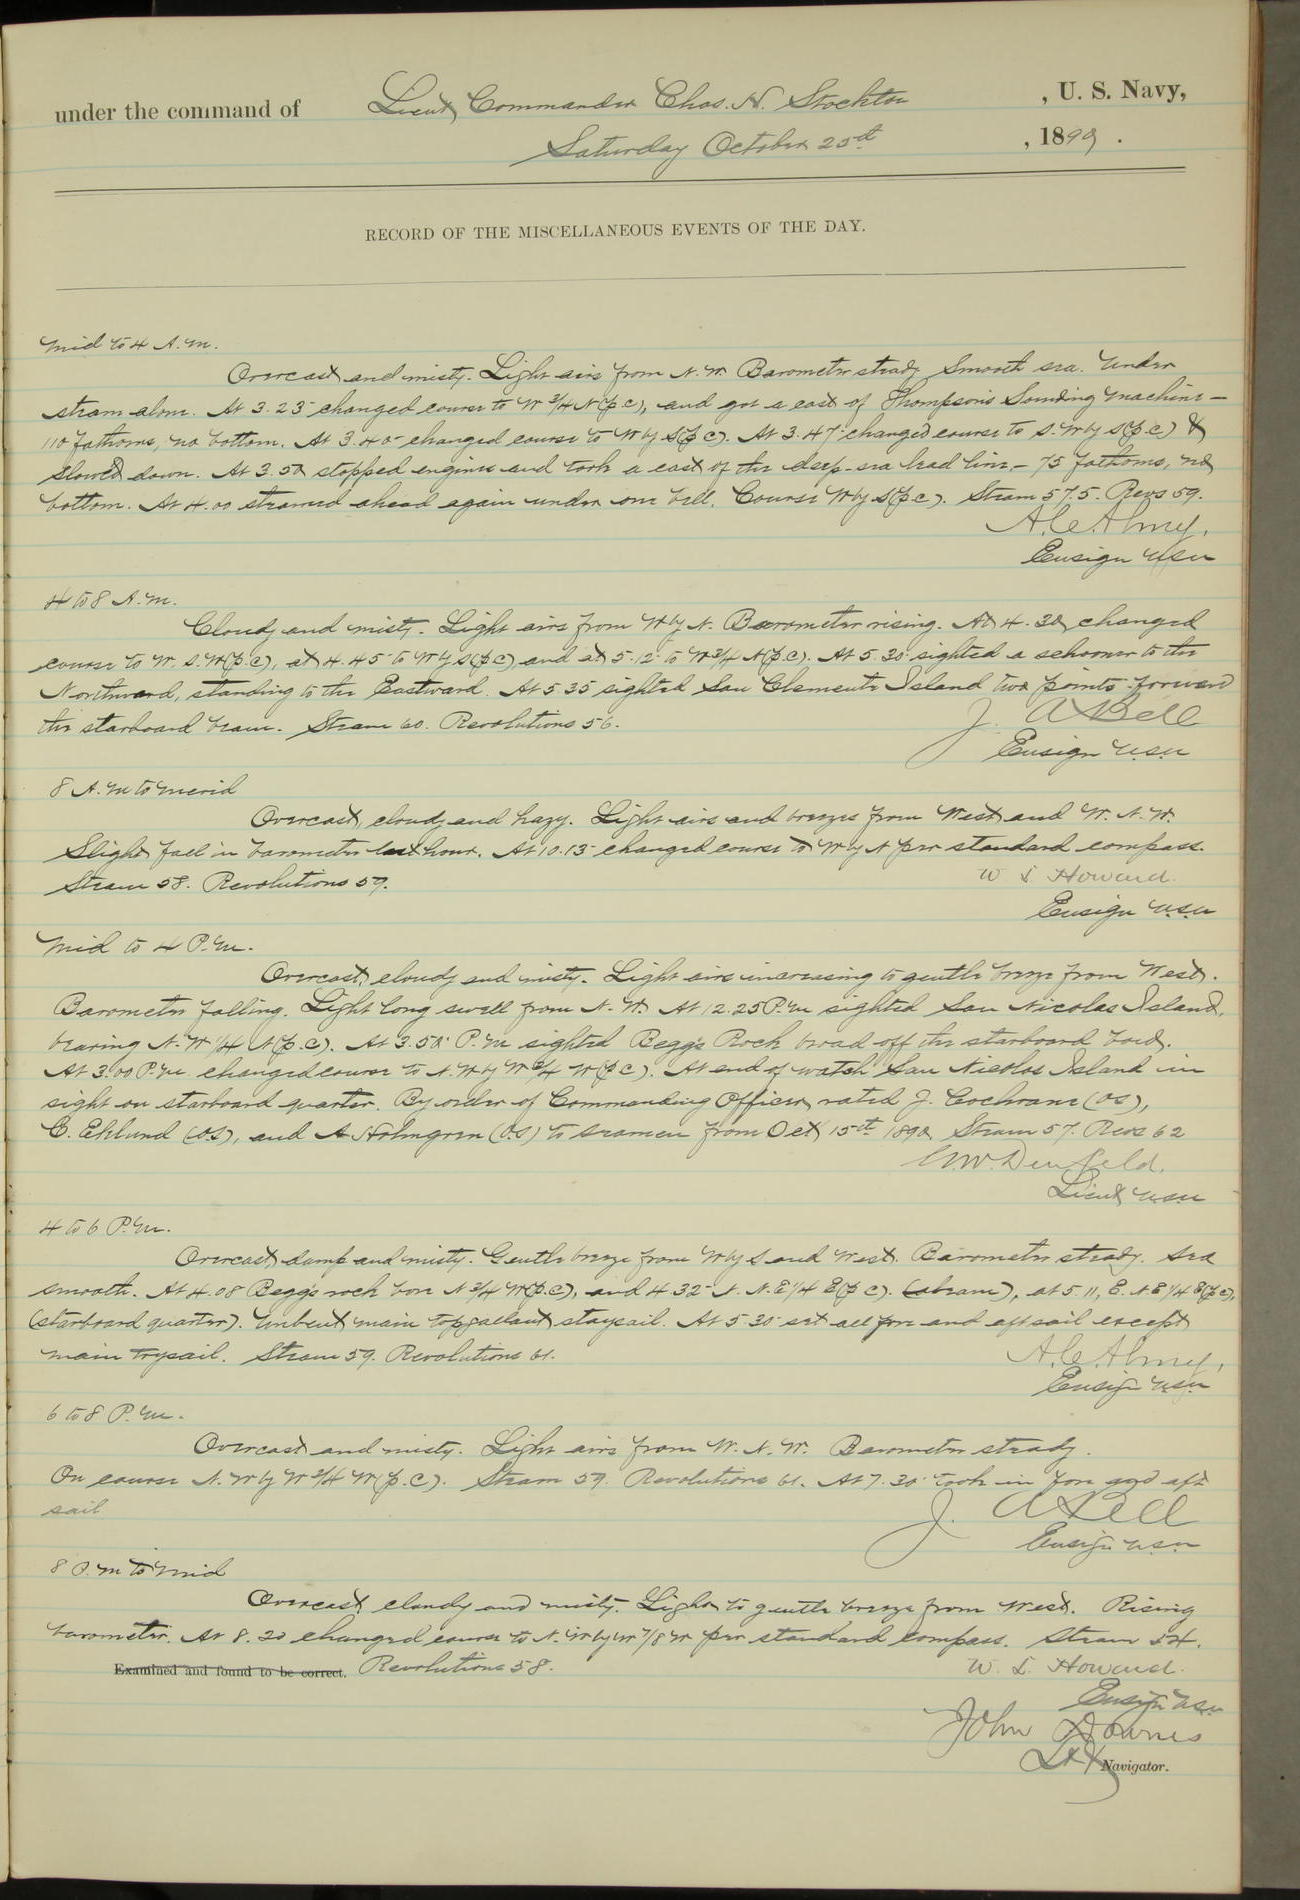 under the command of Lieut Commander Chas. H. Stockton , U. S. Navy,
Saturday October 25th , 1890 .
RECORD OF THE MISCELLANEOUS EVENTS OF THE DAY.
Mid to 4 A.M.
Overcast and misty. Light airs from N.W. Barometer steady Smooth sea. Under
steam alone. At 3.25 changed course to W 3/4 N (p.c), and got a cast of Thompson's Sounding Machine —
110 fathoms, no bottom. At 3.40 changed course to W by S (p c). At 3.47 changed course to S. W by S (p.c) &
slowed down. At 3.50 stopped engines and took a cast of the deep-sea lead line, — 75 fathoms, no
bottom. At 4.00 steamed ahead again under one bell. Course W by S (p c). Steam 57.5. Revs 59.
A. C. Almy,
Ensign USN
4 to 8 A.M.
Cloudy and misty. Light airs from W by N. Barometer rising. At 4.30 changed
course to W. S. W (p.c), at 4.45 to W by S (p c) and at 5.12 to W 3/4 N (p.c). At 5.30 sighted a schooner to the
Northward, standing to the Eastward. At 5 35 sighted San Clemente Island two points forward
the starboard beam. Steam 60. Revolutions 56.
J. A Bell
Ensign U.S.N
8 A.M to Merid
Overcast, cloudy and hazy. Light airs and breezes from West and W. N. W.
Slight fall in barometer last hour. At 10.15 changed course to W by N per standard compass.
Steam 58. Revolutions 59.
W L Howard.
Ensign U.S.N
Mid to 4 P.M.
Overcast, cloudy and misty. Light airs increasing to gentle breeze from West.
Barometer falling. Light long swell from N. W. At 12.25 P.M sighted San Nicolas Island,
bearing N. W 1/4 N (p.c). At 3.50 P.M sighted Begg's Rock broad off the starboard bow.
At 3.00 P.M. changed course to N. W by W 3/4 W (p c). At end of watch San Nicolas Island in
sight on starboard quarter. By order of Commanding Officer, rated J. Cochrane (OS),
C. Eklund (O.S), and A Holmgren (O.S) to seamen from Oct 15th 1890 Steam 57. Revs 62
G.W. Denfeld.
Lieut USN
4 to 6 P.M.
Overcast, damp and misty. Gentle breeze from W by S and West. Barometer steady. Sea
smooth. At 4.08 Begg's rock bore N 3/4 W (p.c), and 4 32 N. N. E 1/4 E (p c). (abeam), at 5.11, E. N E 1/4 E (p c),
(starboard quarter). Unbent main topgallant staysail. At 5.30 set all fore and aft sail except
main trysail. Steam 59. Revolutions 61.
A. C. Almy,
Ensign U.S.N
6 to 8 P.M.
Overcast and misty. Light airs from W. N. W. Barometer steady.
On course N. W by W 3/4 W (p.c). Steam 59. Revolutions 61. At 7.30 took in fore and aft
sail
J. A Bell
Ensign U.S.N
8 P.M to Mid
Overcast, cloudy and misty. Light to gentle breeze from West. Rising
barometer. At 8.20 changed course to N. W by W 7/8 W per standard compass. Steam 54.
Examined and found to be correct. Revolutions 58.
W. L. Howard.
Ensign USN
John Downes
Lt & Navigator.